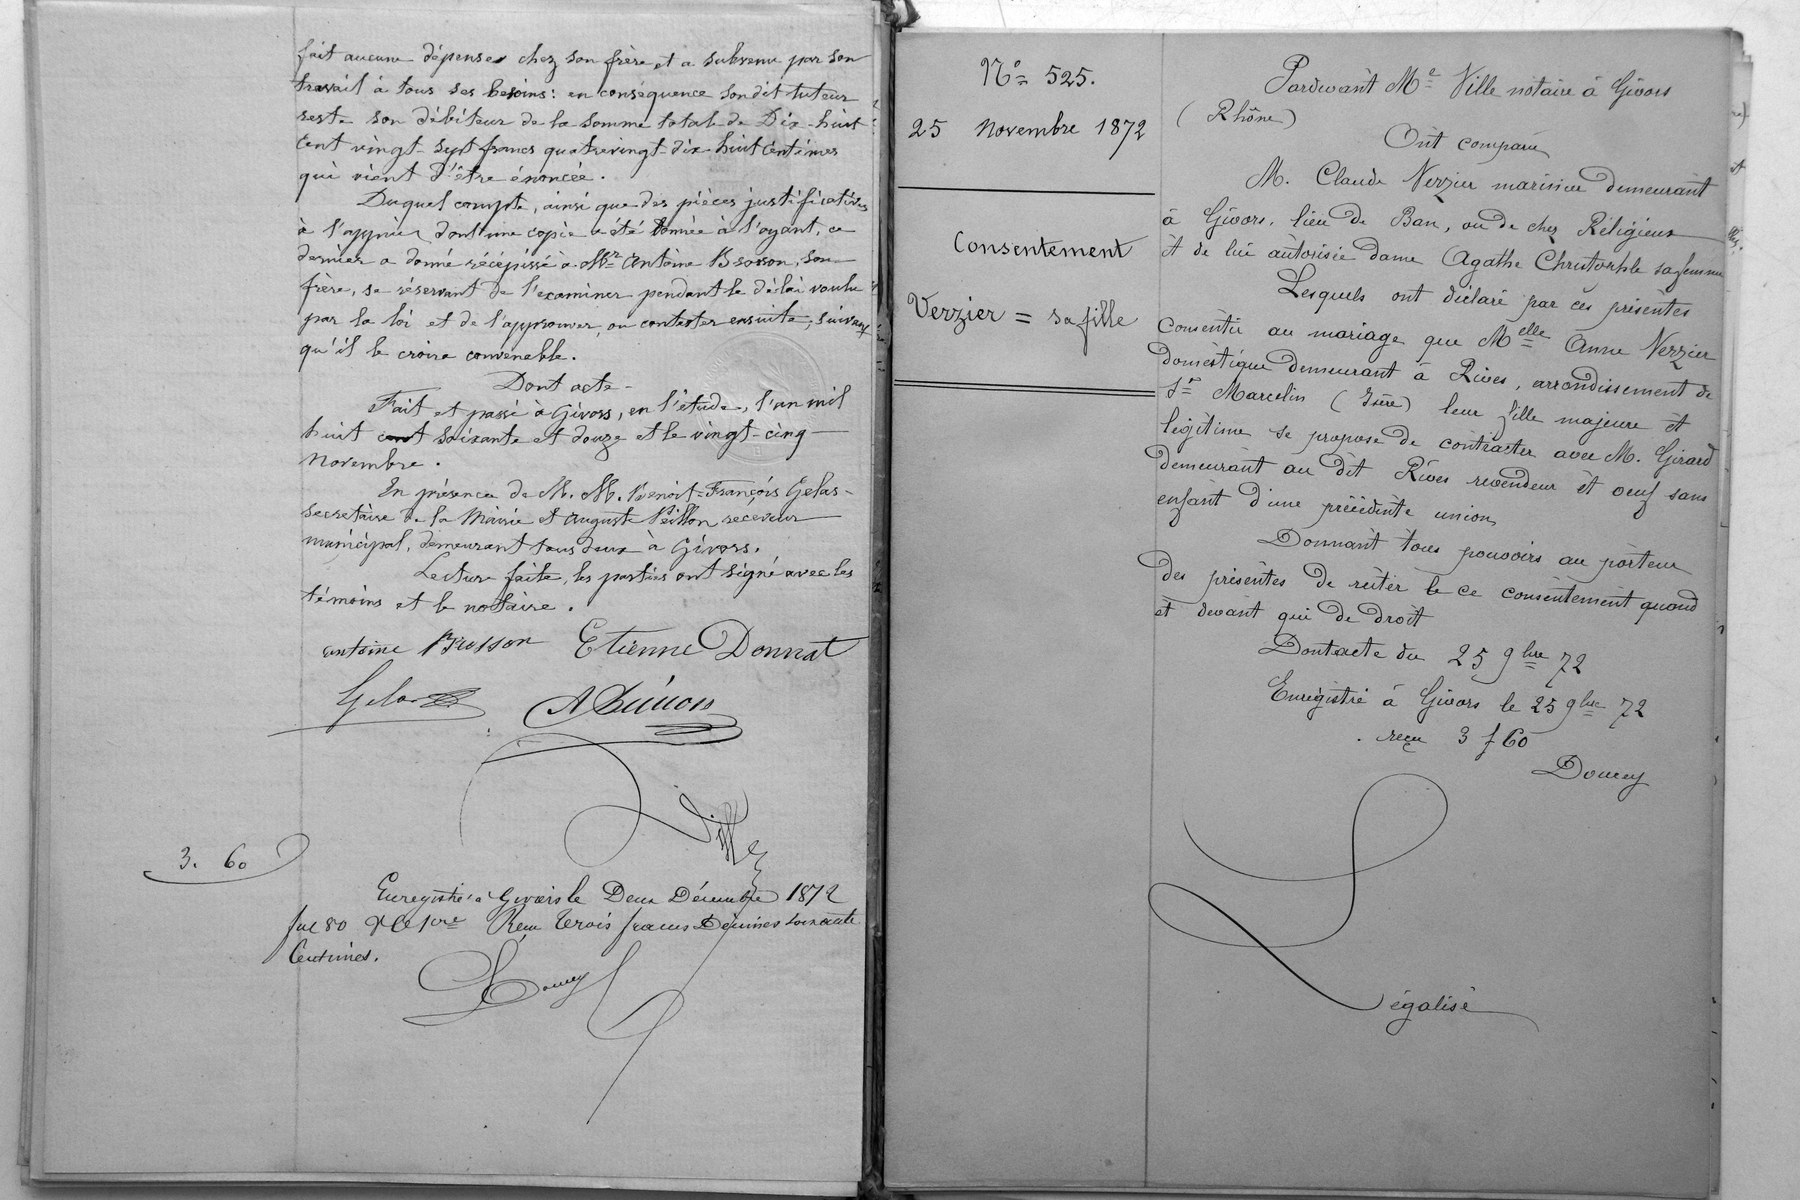 fait aucune dépenses chez son frère et a subvenu par son
travail à tous ses besoins : en conséquence sondit tuteur
reste son débiteur de la somme totale de Dix-huit
cent vingt-sept francs quatrevingt-dix-huit centimes
qui vient d'être énoncée.
Duquel compte, ainsi que des pièces justificatives
à l'appui dont une copie a été donnée à l'oyant, ce
dernier a donné récépissé à Mr Antoine Brosson, son
frère, se réservant de l'examiner pendant le délai voulu
par la loi et de l'approuver, ou contester ensuite, suivant
qu'il le croira convenable.
Dont acte -
Fait et passé à Givors, en l'étude, l'an mil
huit cent soixante et douze et le vingt-cinq
novembre.
En présence de M. M. Benoit-François Gelas-
secretaire de la Mairie et Auguste Peillon receveur
municipal, demeurant tous deux à Givors.
Lecture faite, les parties ont signé avec les
témoins et le notaire.
antoine Brosson Etienne Donnat
Gelas
Ville
3. 60
Enregistré à Givors le Deux Décembre 1872
fol 80 Reçu trois francs Décimes soixante
Centimes.
Doucey
N° 525.
25 Novembre 1872
Consentement
Verzier = sa fille
Pardevant Me Ville notaire à Givors
(Rhône)
Ont comparu
M. Claude Verzier marinier demeurant
à Givors, lieu de Ban, ou de chez Religieux
et de lui autorisée dame Agathe Christophle sa femme
Lesquels ont déclaré par ces présentes
Consentir au mariage que Melle Anne Verzier
domestique demeurant à Rives, arrondissement de
St Marcelin (Isère) leur fille majeure et
légitime se propose de contracter avec M. Girard
demeurant au dit Rives revendeur et veuf sans
enfant d'une précédente union
Donnant tous pouvoirs au porteur
des présentes de réitérer le ce consentement quand
et devant qui de droit
Dont acte du 25 9bre 72
Enregistré à Givors le 25 9bre 72
reçu 3 f 60
Doucey
Légalisé